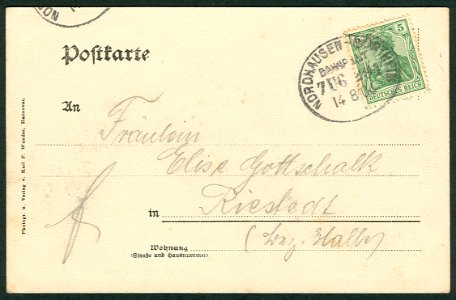 NORDHAUSEN
BAHNPOST
ZUG
14 8
5
DEUTSCHES REICH
Postkarte
An
Fräulein
Elise Gottschalk
in Riestedt
(Bez. Halle)
Wohnung
(Straße und Hausnummer)
Photogr. u. Verlag v. Karl F. Wunder, Hannover.